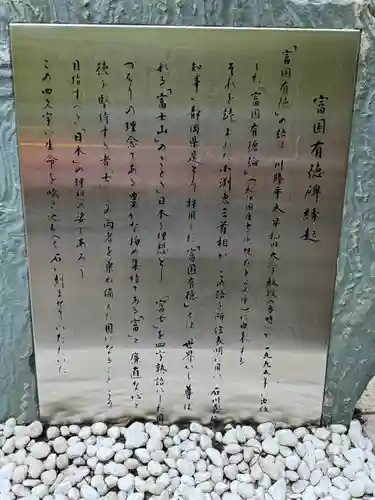 富国有徳碑縁起
「富国有徳」の銘は、川勝平太早稲田大学教授(当時)が一九九五年に出版
した「富国有徳論」に由来する
それを読まれた小渕恵三首相が この語を所信表明に用い、石川嘉延
知事も静岡県是として採用した。「富国有徳」とは 世界から尊ば
れる「富士山」のごとき日本を理想とし 「富士」を四字熟語にした国
づくりの理念である。豊かな物の集積である「富」と廉直な心と
徳を堅持する者、士、この両者を兼ね備えた国になることこそ
目指すべき「日本」の理想の姿であろう
この四文字に生命を吹き込むべく石に刻ませていただいた